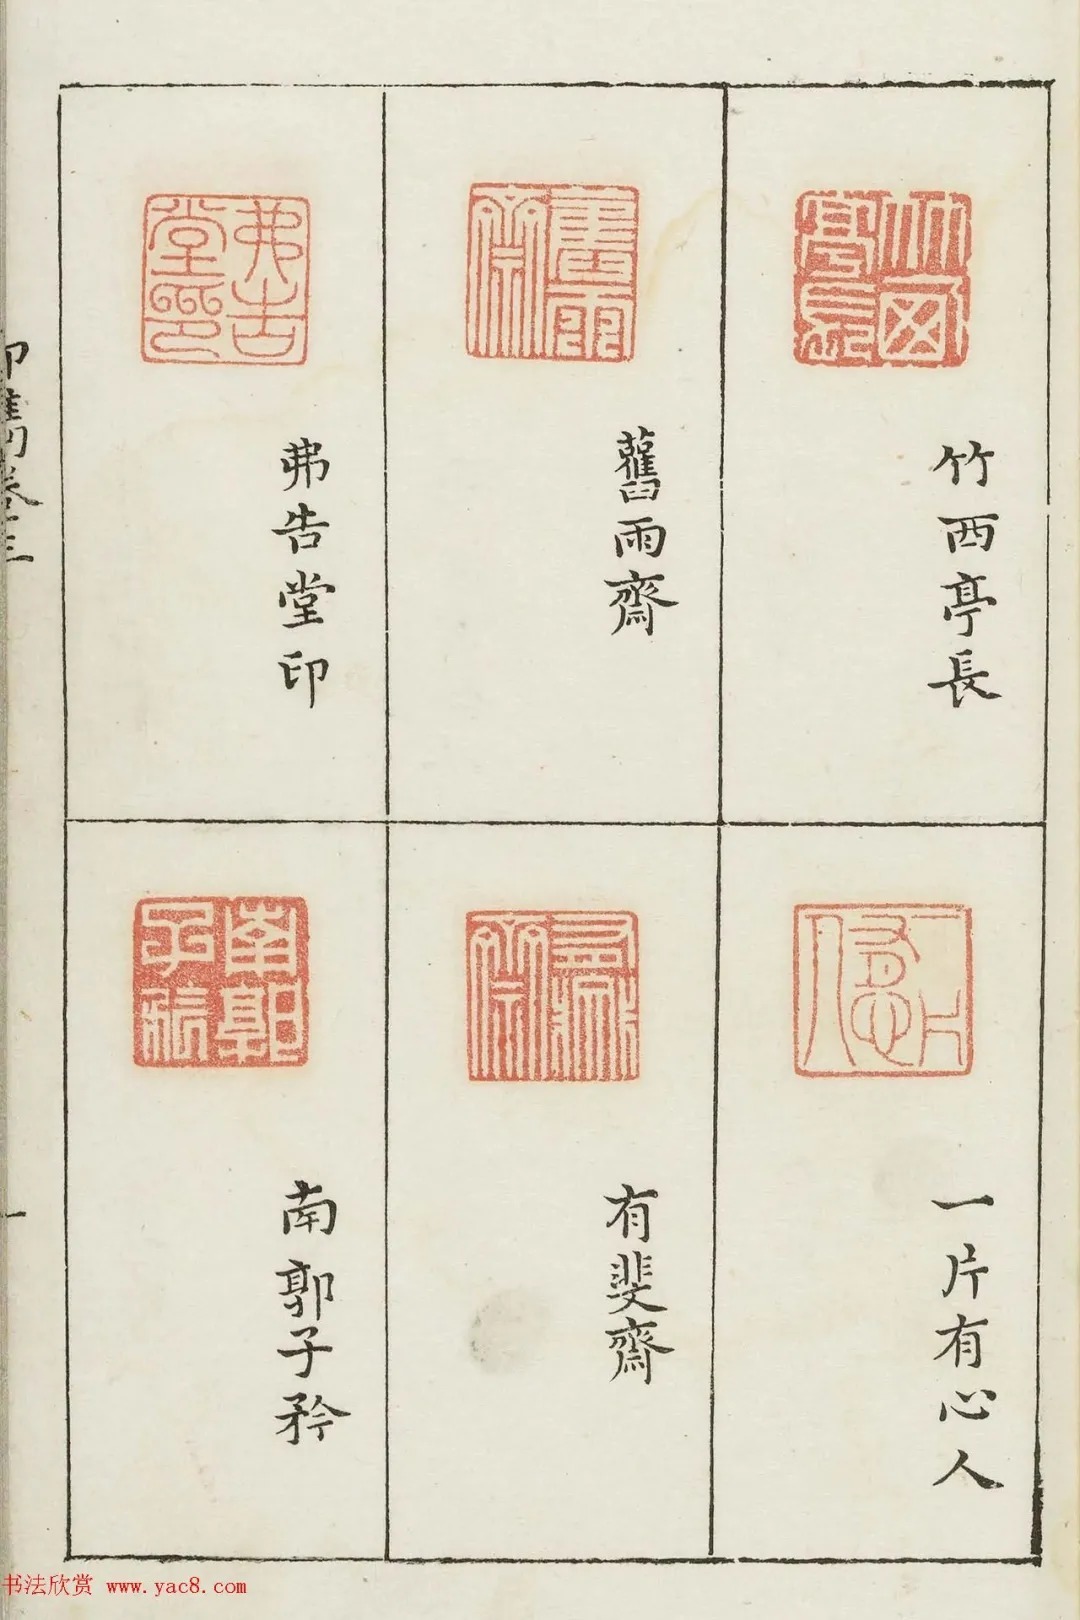 竹西亭長
舊雨齋
弗告堂印
一片有心人
有斐齋
南郭子矜
印雋卷三
一
书法欣赏 www.yac8.com